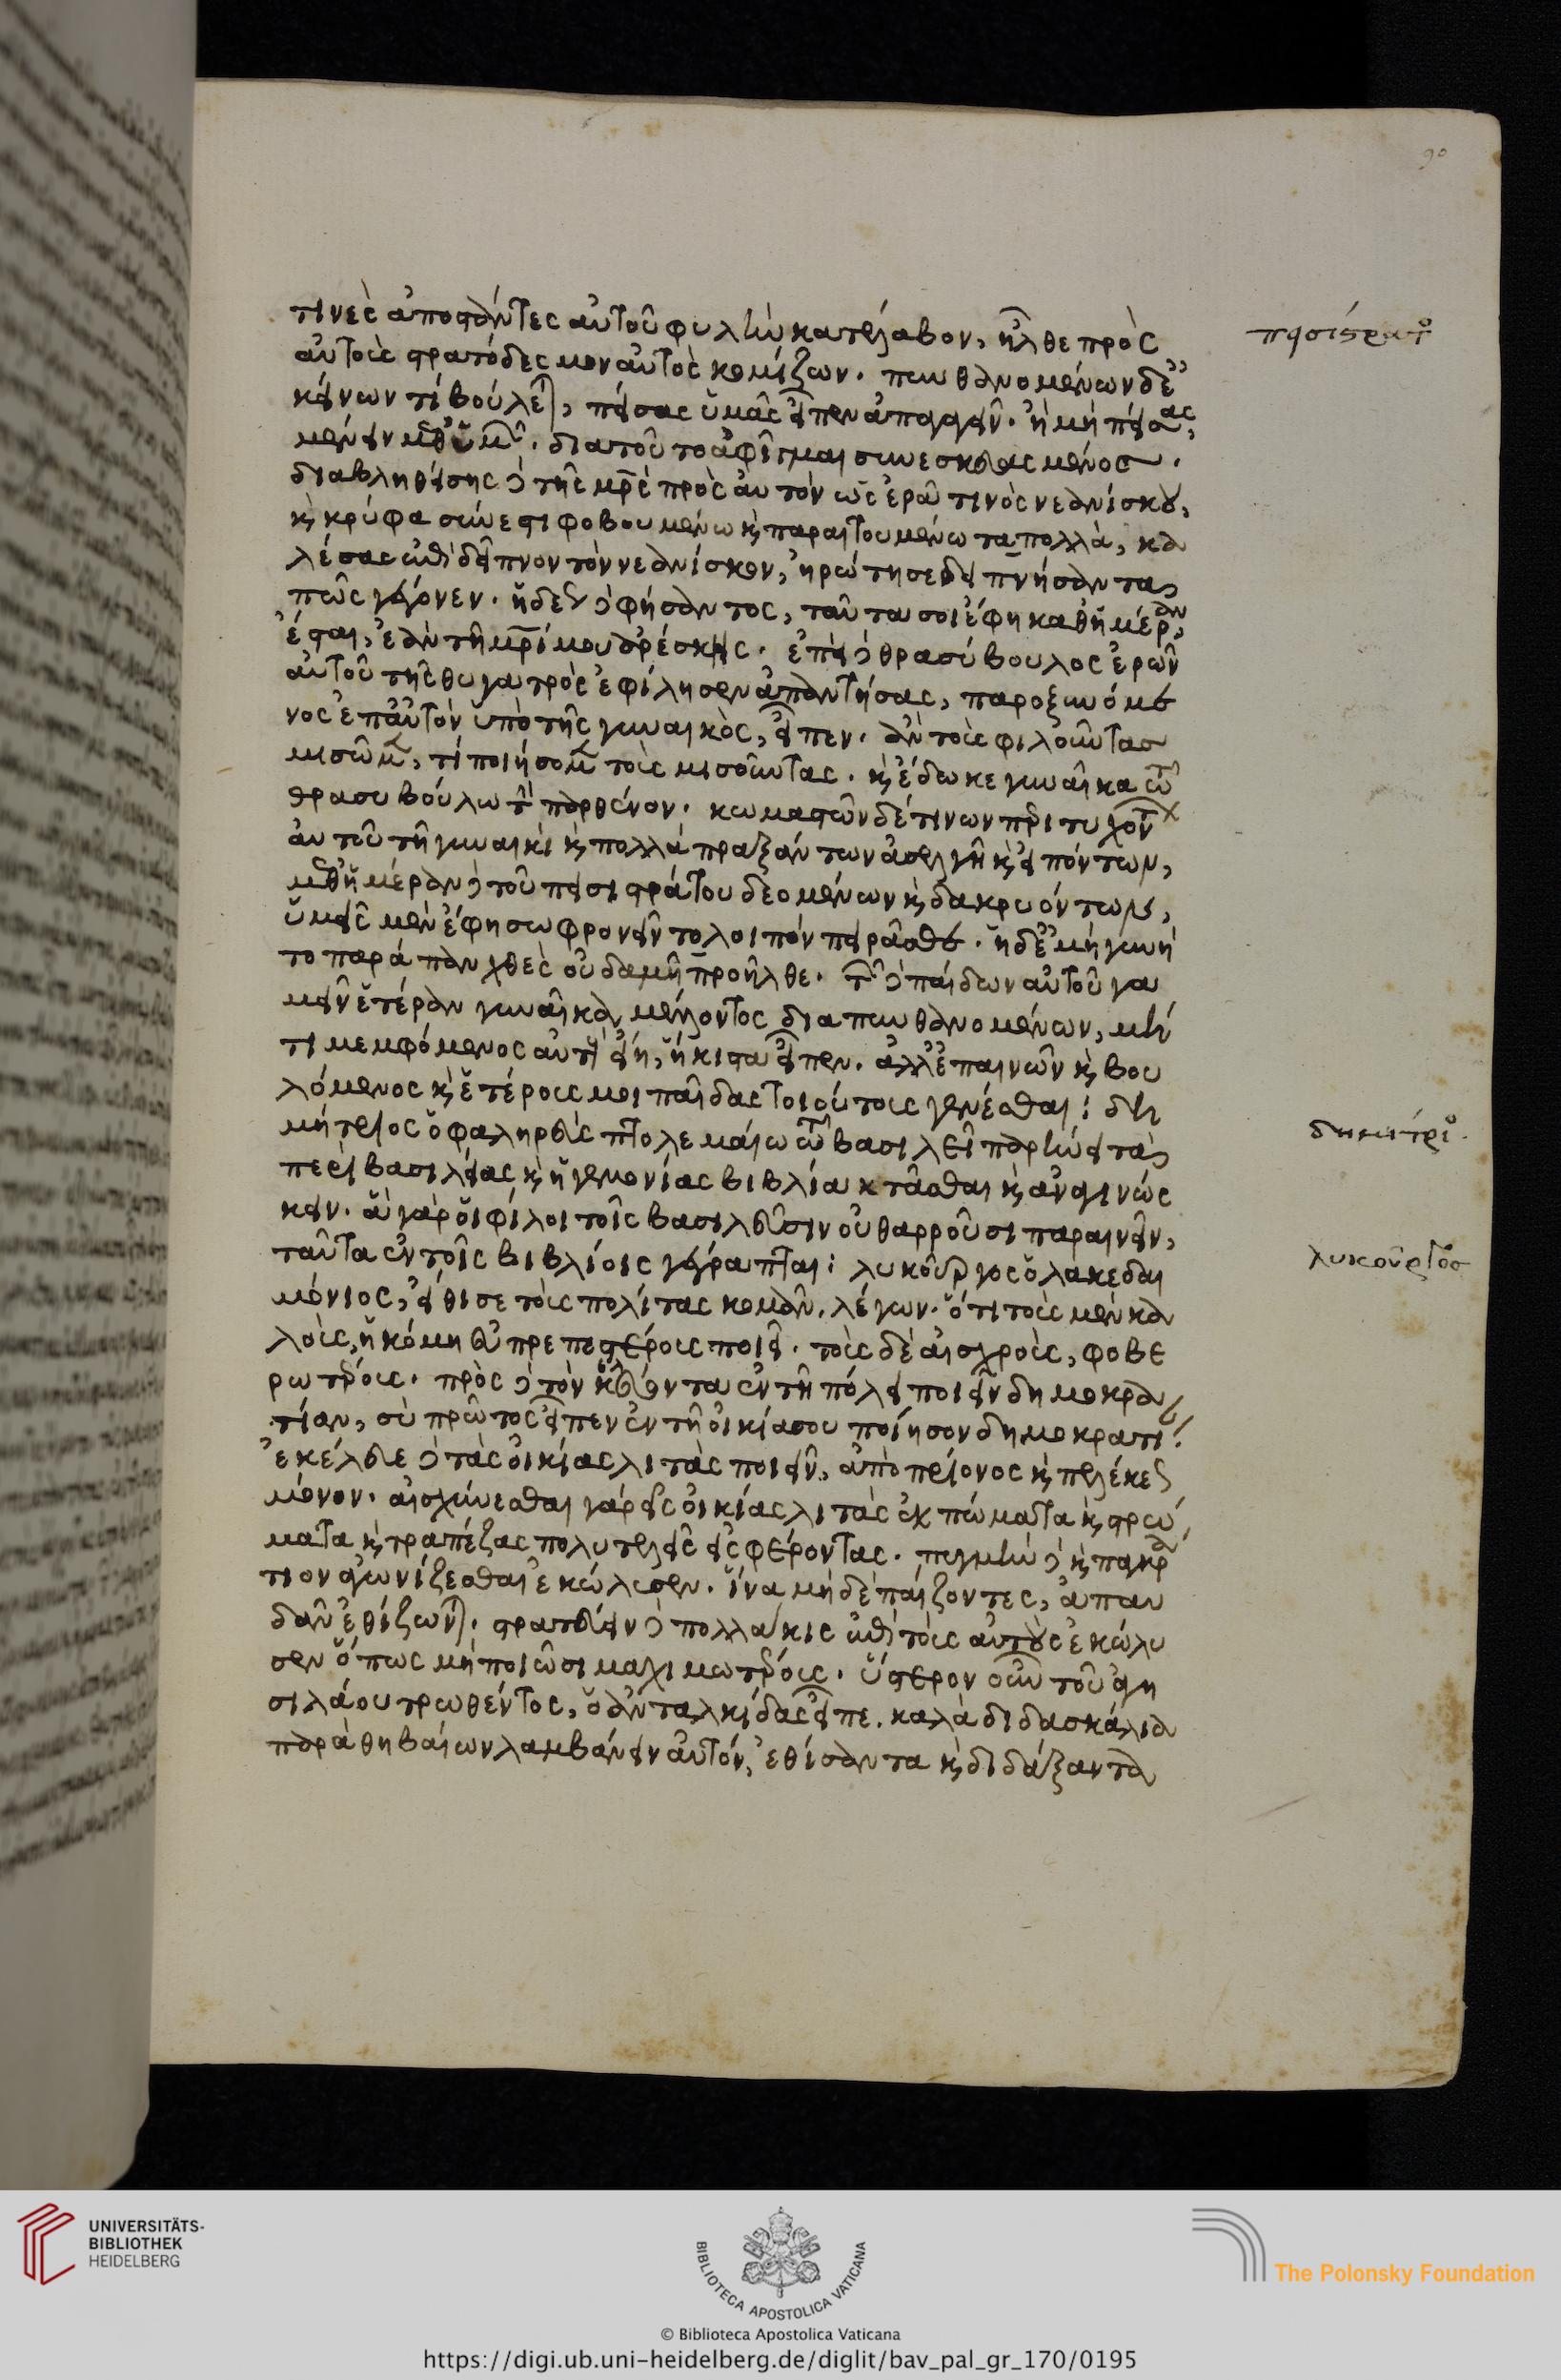 τινὲς ἀποστάντες αὐτοῦ φυλὴν κατέλαβον, ἦλθε πρὸς
αὐτοὺς στρατόδεσμον αὐτὸς κομίζων. πυνθανομένων δὲ ἐ
κείνων τί βούλεται, πείσας ὑμᾶς εἶπεν ἀπαγαγεῖν. ἢ μὴ πείσας,
μένειν μεθ' ὑμῶν. διατοῦτο ἀφῖγμαι συνεσκευασμένος.
διαβληθείσης δὲ τῆς μρ̅ς πρὸς αὐτὸν ὡς ἐρᾶ τινὸς νεανίσκου,
καὶ κρύφα σύνεστι φοβουμένω καὶ παραιτουμένω τὰ πολλὰ, κα
λέσας ἐπὶ δεῖπνον τὸν νεανίσκον, ἠρώτησε δειπνήσαντα
πῶς γέγονεν. ἡδέως δὲ φήσαντος, ταῦτα σοι ἔφη καθ' ἡμέραν,
ἔσται, ἐὰν τῆ μρ̅ί μου ἀρέσκης. ἐπεὶ δὲ θρασύβουλος ἐρῶν
αὐτοῦ τῆς θυγατρὸς ἐφίλησεν ἀπαντήσας, παροξυνόμε
νος ἐπ' αὐτὸν ὑπὸ τῆς γυναικὸς, εἶπεν. ἂν τοὺς φιλοῦντας
μισῶμεν, τί ποιήσομεν τοὺς μισοῦντας. καὶ ἔδωκε γυναῖκα τῶ
θρασυβούλω τὴν παρθένον. κωμαστῶν δέ τινων περιτυχόντων
αὐτοῦ τῆ γυναικὶ καὶ πολλὰ πραξάντων ἀσελγῆ καὶ εἰπόντων,
μεθ' ἡμέραν δὲ τοῦ πεισιστράτου δεομένων καὶ δακρυόντων,
ὑμεῖς μὲν ἔφη σωφρονεῖν τολοιπὸν πειρᾶσθε. ἡ δ' ἐμὴ γυνὴ
το παράπαν χθὲς οὐδαμῆ προῆλθε. τῶν δὲ παίδων αὐτοῦ γα
μεῖν ἑτέραν γυναῖκα μέλλοντος διαπυνθανομένων, μή
τι μεμφόμενος αὐτοῖς εἴη, ἥκιστα εἶπεν. ἀλλ' ἐπαινῶν καὶ βου
λόμενος καὶ ἑτέρους μοι παῖδας τοιούτους γενέσθαι: δη
μήτριος ὁ φαληρεὺς πτολεμαίω τῶ βασιλεῖ παρήνει τὰ
περὶ βασιλείας καὶ ἡγεμονίας βιβλία κτᾶσθαι καὶ ἀναγινώς
κειν. ἃ γὰρ οἱ φίλοι τοῖς βασιλεῦσιν οὐ θαρροῦσι παραινεῖν,
ταῦτα ἐν τοῖς βιβλίοις γέγραπται: λυκοῦργος ὁ λακεδαι
μόνιος, εἴθισε τοὺς πολίτας κομᾶν. λέγων. ὅτι τοὺς μὲν κα
λοὺς, ἡ κόμη εὐπρεπεστέρους ποιεῖ. τοὺς δὲ αἰσχροὺς, φοβε
ρωτέρους. πρὸς δὲ τὸν κελεύοντα ἐν τῆ πόλει ποιεῖν δημοκρα
τίαν, σὺ πρῶτος εἶπεν ἐν τῆ οἰκία σου ποίησον δημοκρατί.
ἐκέλευε δὲ τὰς οἰκίας λιτὰς ποιεῖν, ἀπὸ πρίονος καὶ πελέκεως
μόνον. αἰσχύνεσθαι γὰρ εἰς οἰκίας λιτὰς ἐκπώματα καὶ στρώ
ματα καὶ τραπέζας πολυτελεῖς εἰσφέροντας. πυγμὴν δὲ καὶ παγκρά
τιον ἀγωνίζεσθαι ἐκώλυσεν. ἵνα μηδὲ παίζοντες, ἀπαυ
δᾶν ἐθίζωνται. στρατεύειν δὲ πολλάκις ἐπὶ τοὺς αὐτοὺς ἐκώλυ
σεν ὅπως μὴ ποιῶσι μαχιμωτέρους. ὕστερον οὖν τοῦ ἀγη
σιλάου τρωθέντος, ὁ ἀνταλκίδας εἶπε. καλὰ διδασκάλια
παρὰ θηβαίων λαμβάνειν αὐτόν, ἐθίσαντα καὶ διδάξαντα
πεισίστρατος
δημήτριος.
λυκοῦργος
90
UNIVERSITÄTS-
BIBLIOTHEK
HEIDELBERG
BIBLIOTECA APOSTOLICA VATICANA
The Polonsky Foundation
© Biblioteca Apostolica Vaticana
https://digi.ub.uni-heidelberg.de/diglit/bav_pal_gr_170/0195